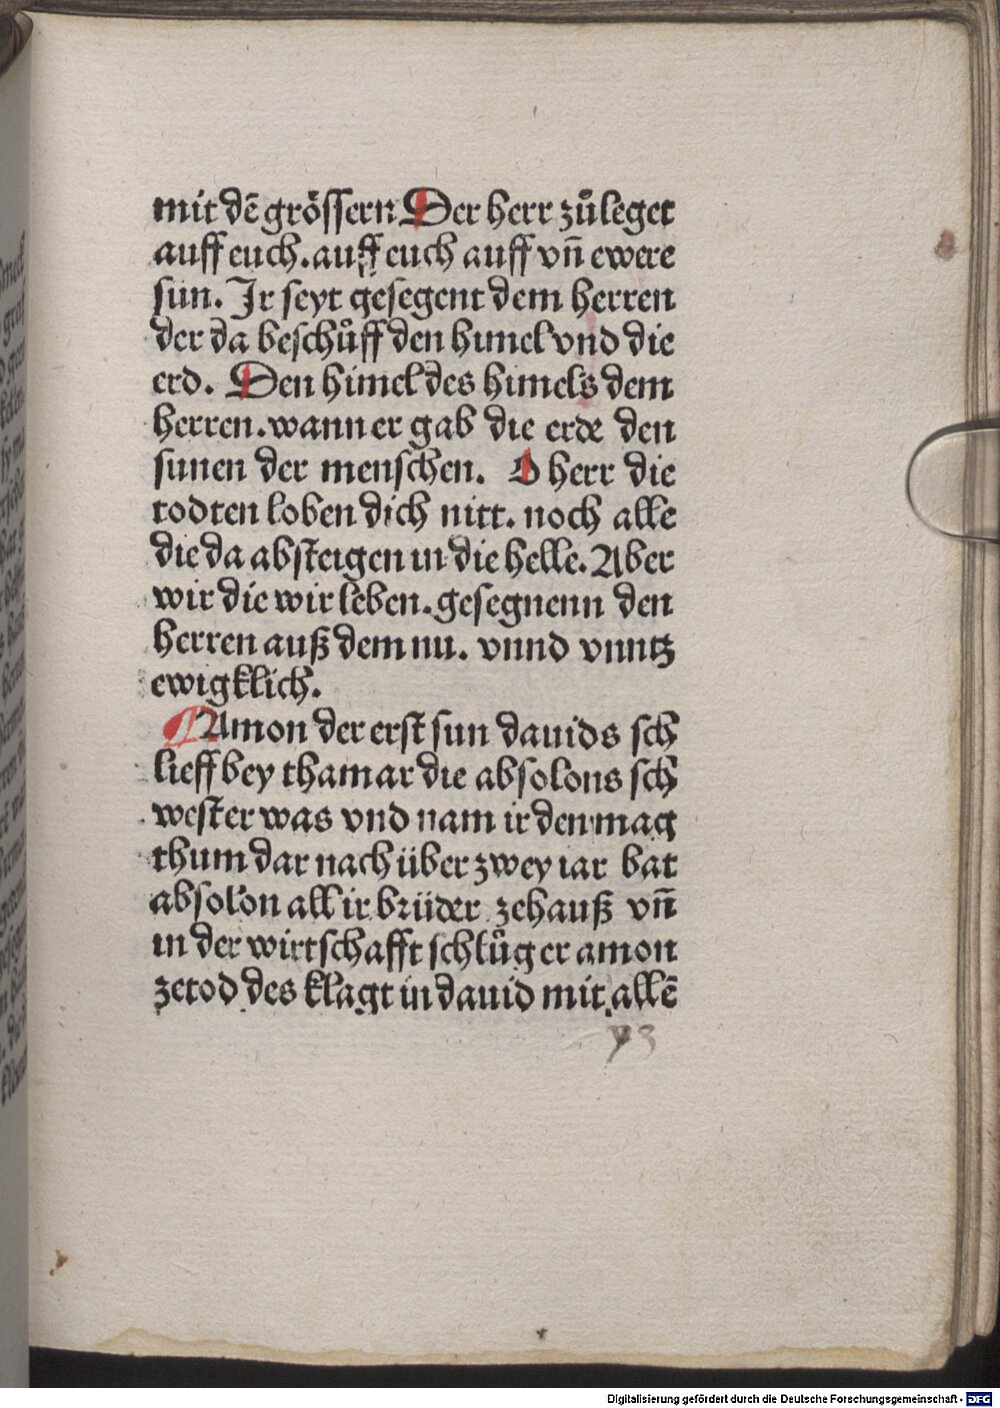 mit dē grössern Der herr zůleget
auff euch. auff euch auff vñ ewere
sun. Jr seyt gesegent dem herren
der da beschůff den himel vnd die
erd. Den himel des himels dem
herren. wann er gab die erde den
sunen der menschen. O herr die
todten loben dich nitt. noch alle
die da absteigen in die helle. Aber
wir die wir leben. gesegnenn den
herren auß dem nu. vnnd vnntz
ewigklich.
Amon der erst sun dauids sch
lieff bey thamar die absolons sch
wester was vnd nam ir den mag
thum dar nach über zwey iar bat
absolon all ir brüder zehauß vñ
in der wirtschafft schlůg er amon
zetod des klagt in dauid mit allē
Digitalisierung gefördert durch die Deutsche Forschungsgemeinschaft - DFG